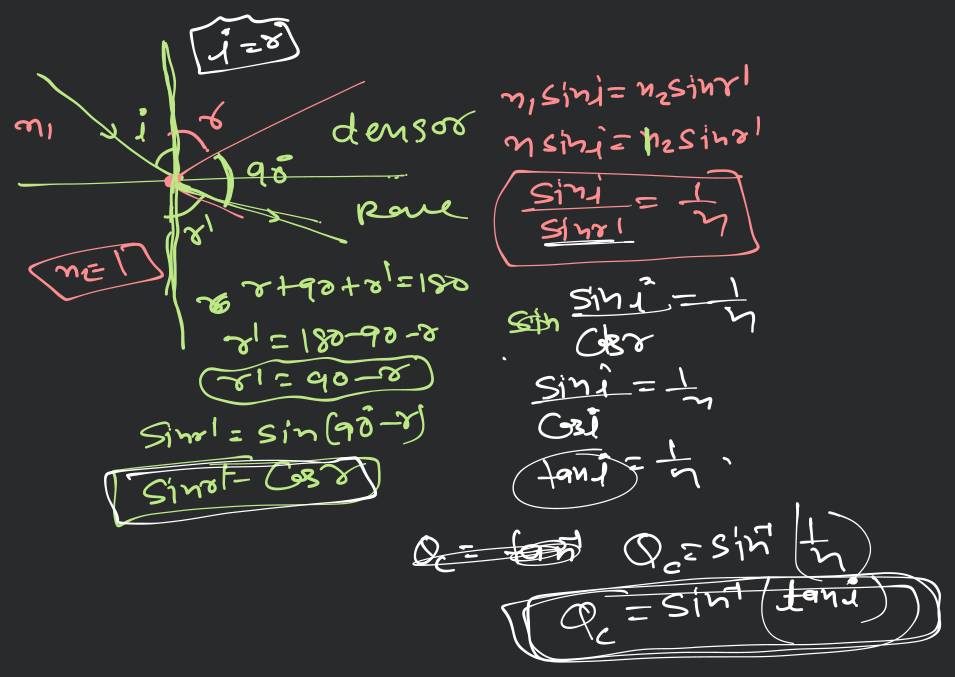 i = r
n1
i
r
densor
90°
Rare
r'
n2 = 1
r + 90 + r' = 180
r' = 180 - 90 - r
r' = 90 - r
Sinr' = sin (90° - r)
Sinr' = Cos r
n1 sini = n2 sinr'
n sini = n2 sinr'
sini / sinr' = 1/n
sin i / Cos r = 1/n
sin i / Cos i = 1/n
tan i = 1/n
Qc = tan-1
Qc = sin-1 (1/n)
Qc = sin-1 (tan i)